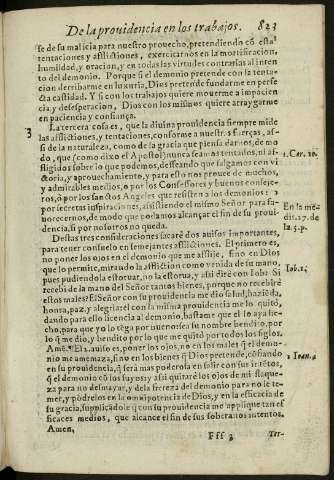 De la prouidencia en los trabajos. 823
se de su malicia para nuestro prouecho, pretendiendo cõ estas
tentaciones y aflicciones, exercitarnos en la mortificacion,
humildad, y oracion, y en todas las virtudes contrarias al inten
to del demonio. Porque si el demonio pretende con la tenta-
cion derribarme en luxuria, Dios pretende fundarme en perfe
cta castidad. Y si con los trabajos quiere mouerme a impacien
cia, y desesperacion, Dios con los mismos quiere arraygarme
en paciencia y confiança.
3 La tercera cosa es, que la diuina prouidencia siempre mide
las aflicciones, y tentaciones, conforme a nuestras fuerças, assi
de la naturaleza, como de la gracia que piensa darnos, de mo
do, que (como dixo el Apostol) nunca seamos tentados, ni a-
fligidos sobre lo que podemos, desseando que salgamos con vi
ctoria, y aprouechamiento, y para esto nos prouee de muchos,
y admirables medios, o por los Confessores y buenos conseje-
ros, o por los santos Angeles que resisten a los demonios: o
por secretas inspiraciones, assistiendo el mismo Señor para fa-
uorecernos, de modo que podamos alcançar el fin de su proui-
dencia, si por nosotros no queda.
1. Cor. 10.
En la me
dit. 27. de
la 5. p.
Destas tres consideraciones sacaré dos auisos importantes,
para tener consuelo en semejantes aflicciones. El primero es,
no poner los ojos en el demonio que me aflije, sino en Dios
que lo permite, mirando la afliccion como venida de su mano,
pues pudiendola estoruar, no la estorua, y assi diré con Iob: Si
recibi de la mano del Señor tantos bienes, porque no recibiré
estos males? El Señor con su prouidencia me dio salud, haziẽda,
honra, paz, y alegria: el con la misma prouidencia me lo quitó,
dando para ello licencia al demonio, bastame que el lo aya fe-
cho, para que yo lo tẽga por bueno: sea su nombre bendito, por
lo q̃ me dio, y bendito por lo que me quitó por todos los siglos.
Iob. 1.
Amẽ. El 2. auiso es, poner los ojos, no en los males q̃ el demo-
nio me amenaza, sino en los bienes q̃ Dios pretende, cõfiando
en su prouidencia, q̃ será mas poderosa en salir con sus intẽtos,
q̃ el demonio cõ los suyos: y assi quitaré los ojos de mi flaque-
za para no desmayar, y de la fiereza del demonio para no le te-
mer, y põdrelos en la omnipotencia de Dios, y en la eficacia de
su gracia, suplicãdole q̃ con su prouidencia me applique tan ef
ficaces medios, que alcance el fin de sus soberanos intentos.
Amen.
1 Ioan. 4
Fff 3 Ter-